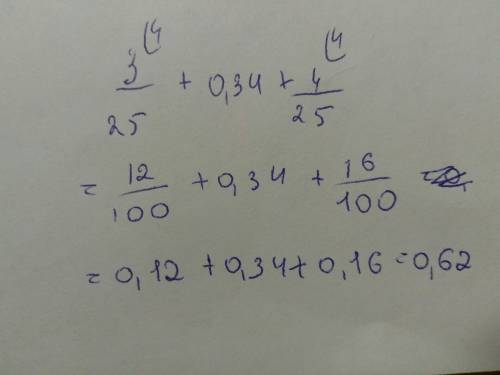 3/25 (4 + 0,34 + 4/25 (4
= 12/100 + 0,34 + 16/100
= 0,12 + 0,34 + 0,16 = 0,62